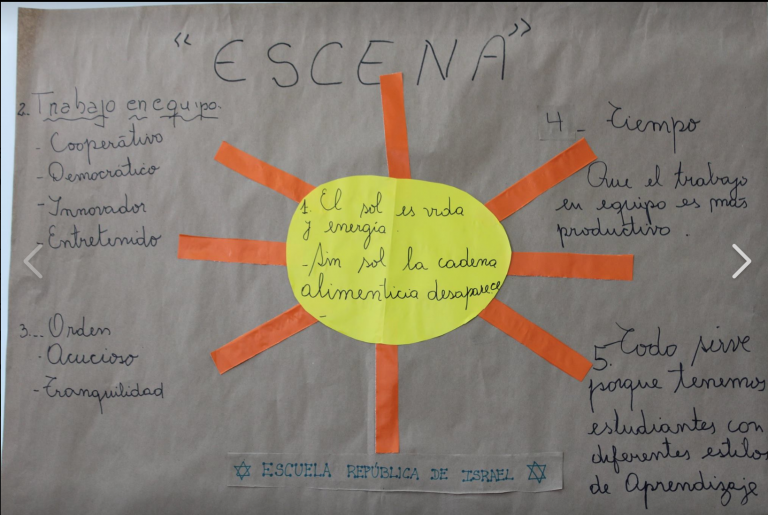 "ESCENA"
1. El sol es vida
y energía.
- Sin sol la cadena
alimenticia desaparece
-
2. Trabajo en equipo.
- Cooperativo
- Democrático
- Innovador
- Entretenido
3... Orden
· Acucioso
- Tranquilidad
4 - Tiempo
Que el trabajo
en equipo es más
productivo.
5. Todo sirve
porque tenemos
estudiantes con
diferentes estilos
de Aprendizaje
✡ ESCUELA REPÚBLICA DE ISRAEL ✡